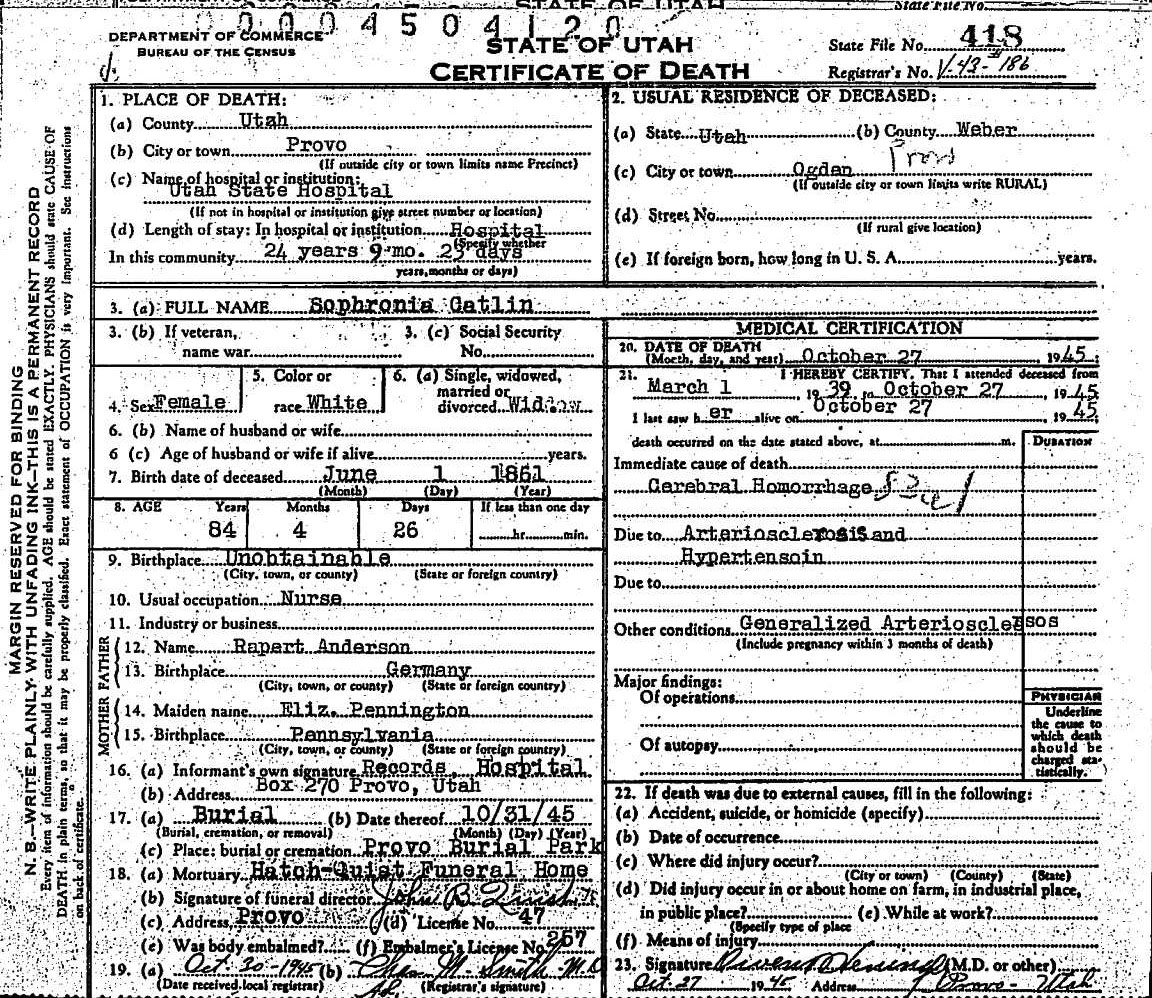 STATE OF UTAH
State File No.
00004504120
DEPARTMENT OF COMMERCE
BUREAU OF THE CENSUS
STATE OF UTAH
CERTIFICATE OF DEATH
State File No. 418
Registrar's No. V-43-186
MARGIN RESERVED FOR BINDING
N. B.—WRITE PLAINLY WITH UNFADING INK—THIS IS A PERMANENT RECORD
Every item of information should be carefully supplied. AGE should be stated EXACTLY. PHYSICIANS should state CAUSE OF
DEATH in plain terms, so that it may be properly classified. Exact statement of OCCUPATION is very important. See instructions
on back of certificate.
1. PLACE OF DEATH:
(a) County Utah
(b) City or town Provo
(If outside city or town limits name Precinct)
(c) Name of hospital or institution:
Utah State Hospital
(If not in hospital or institution give street number or location)
(d) Length of stay: In hospital or institution Hospital
(Specify whether
In this community 24 years 9 mo. 25 days
years, months or days)
2. USUAL RESIDENCE OF DECEASED:
(a) State Utah (b) County Weber
(c) City or town Ogden Provo
(If outside city or town limits write RURAL)
(d) Street No.
(If rural give location)
(e) If foreign born, how long in U. S. A. years.
3. (a) FULL NAME Sophronia Catlin
3. (b) If veteran, name war
3. (c) Social Security No.
4. Sex Female
5. Color or race White
6. (a) Single, widowed, married or divorced Widow
6. (b) Name of husband or wife
6 (c) Age of husband or wife if alive years.
7. Birth date of deceased June 1 1861
(Month) (Day) (Year)
8. AGE Years Months Days If less than one day
84 4 26 hr. min.
9. Birthplace Unobtainable
(City, town, or county) (State or foreign country)
10. Usual occupation Nurse
11. Industry or business
FATHER
12. Name Rapert Anderson
13. Birthplace Germany
(City, town, or county) (State or foreign country)
MOTHER
14. Maiden name Eliz. Pennington
15. Birthplace Pennsylvania
(City, town, or county) (State or foreign country)
16. (a) Informant's own signature Records, Hospital
(b) Address Box 270 Provo, Utah
17. (a) Burial (b) Date thereof 10/31/45
(Burial, cremation, or removal) (Month) (Day) (Year)
(c) Place: burial or cremation Provo Burial Park
18. (a) Mortuary Hatch-Quist Funeral Home
(b) Signature of funeral director John B.
(c) Address Provo (d) License No. 47
(e) Was body embalmed? (f) Embalmer's License No. 257
19. (a) Oct. 30-1945 (b) Chas M. Smith M.D
(Date received local registrar) (Registrar's signature)
MEDICAL CERTIFICATION
20. DATE OF DEATH
(Month, day, and year) October 27, 1945:
21. I HEREBY CERTIFY, That I attended deceased from
March 1, 1939 to October 27, 1945
I last saw her alive on October 27, 1945
death occurred on the date stated above, at m.
DURATION
Immediate cause of death
Cerebral Homorrhage
Due to Arteriosclerosis and
Hypertensoin
Due to
Other conditions Generalized Arteriosclersos
(Include pregnancy within 3 months of death)
Major findings:
Of operations
Of autopsy
PHYSICIAN
Underline
the cause to
which death
should be
charged sta-
tistically.
22. If death was due to external causes, fill in the following:
(a) Accident, suicide, or homicide (specify)
(b) Date of occurrence
(c) Where did injury occur?
(City or town) (County) (State)
(d) Did injury occur in or about home on farm, in industrial place,
in public place? (e) While at work?
(Specify type of place
(f) Means of injury
23. Signature (M.D. or other)
Oct. 27 1945 Address Provo - Utah